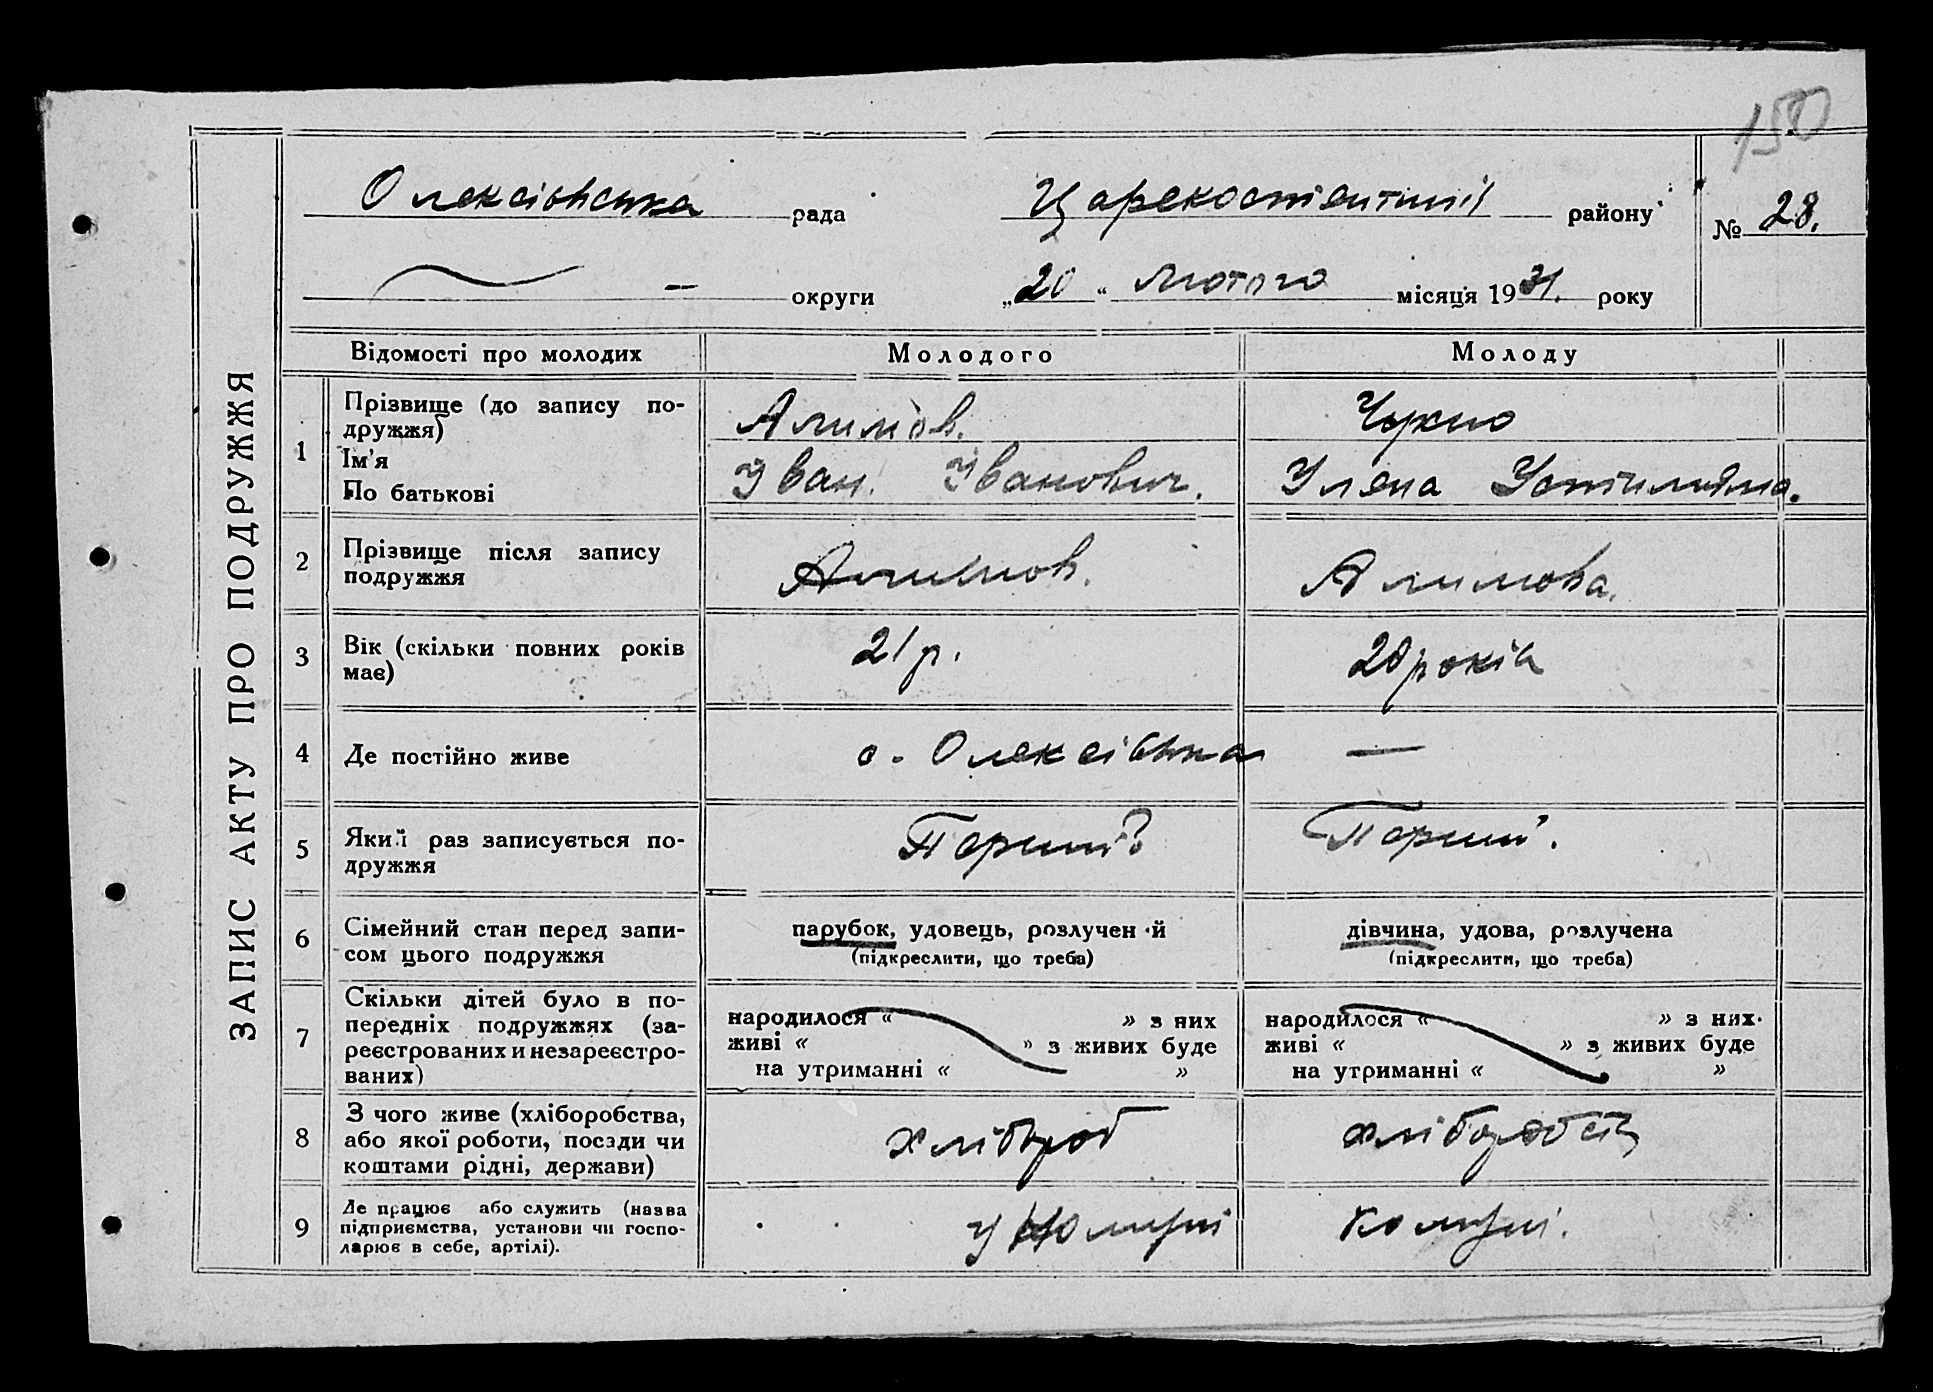 150
Олексіївська рада
Царекостянтинії району
№ 28.
— округи
„20“ Лютого місяця 1931. року
ЗАПИС АКТУ ПРО ПОДРУЖЖЯ
Відомості про молодих
Молодого
Молоду
1
Прізвище (до запису по-
дружжя)
Ім'я
По батькові
Алимов.
Іван. Іванович.
Уляна
2
Прізвище після запису
подружжя
Алимов.
Алимова.
3
Вік (скільки повних років
має)
21 р.
20 років
4
Де постійно живе
с. Олексіівка
—
5
Який раз записується по-
дружжя
Перший
Перший.
6
Сімейний стан перед запи-
сом цього подружжя
парубок, удовець, розлучен й
(підкреслити, що треба)
дівчина, удова, розлучена
(підкреслити, що треба)
7
Скільки дітей було в по-
передніх подружжях (за-
реєстрованих и незареєстро-
ваних)
народилося « » з них
живі « » з живих буде
на утриманні « »
народилося « » з них
живі « » з живих буде
на утриманні « »
8
З чого живе (хліборобства,
або якої роботи, посади чи
коштами рідні, держави)
хлібороб
9
Де працює або служить (назва
підприємства, установи чи госпо-
дарює в себе, артілі).
у комуні
комуні.